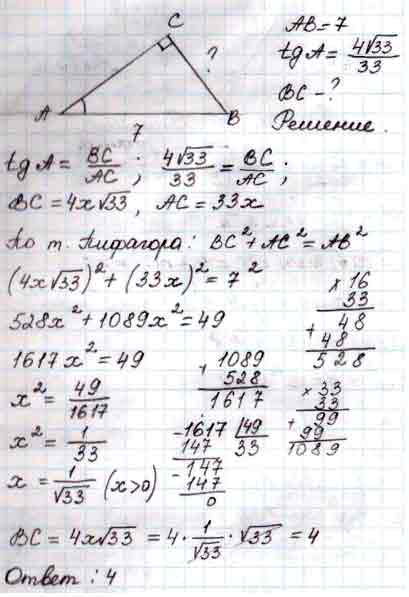 C
AB = 7
tg A = 4√33/33
?
BC - ?
A
B
7
Решение.
tg A = BC/AC ; 4√33/33 = BC/AC ;
BC = 4x√33, AC = 33x
По т. Пифагора: BC² + AC² = AB²
(4x√33)² + (33x)² = 7²
528x² + 1089x² = 49
1617x² = 49
x² = 49/1617
x² = 1/33
x = 1/√33 (x>0)
× 16
33
+ 48
48
528
+ 1089
528
1617
× 33
33
+ 99
99
1089
-1617 |49
147 33
-147
147
0
BC = 4x√33 = 4 · 1/√33 · √33 = 4
Ответ : 4